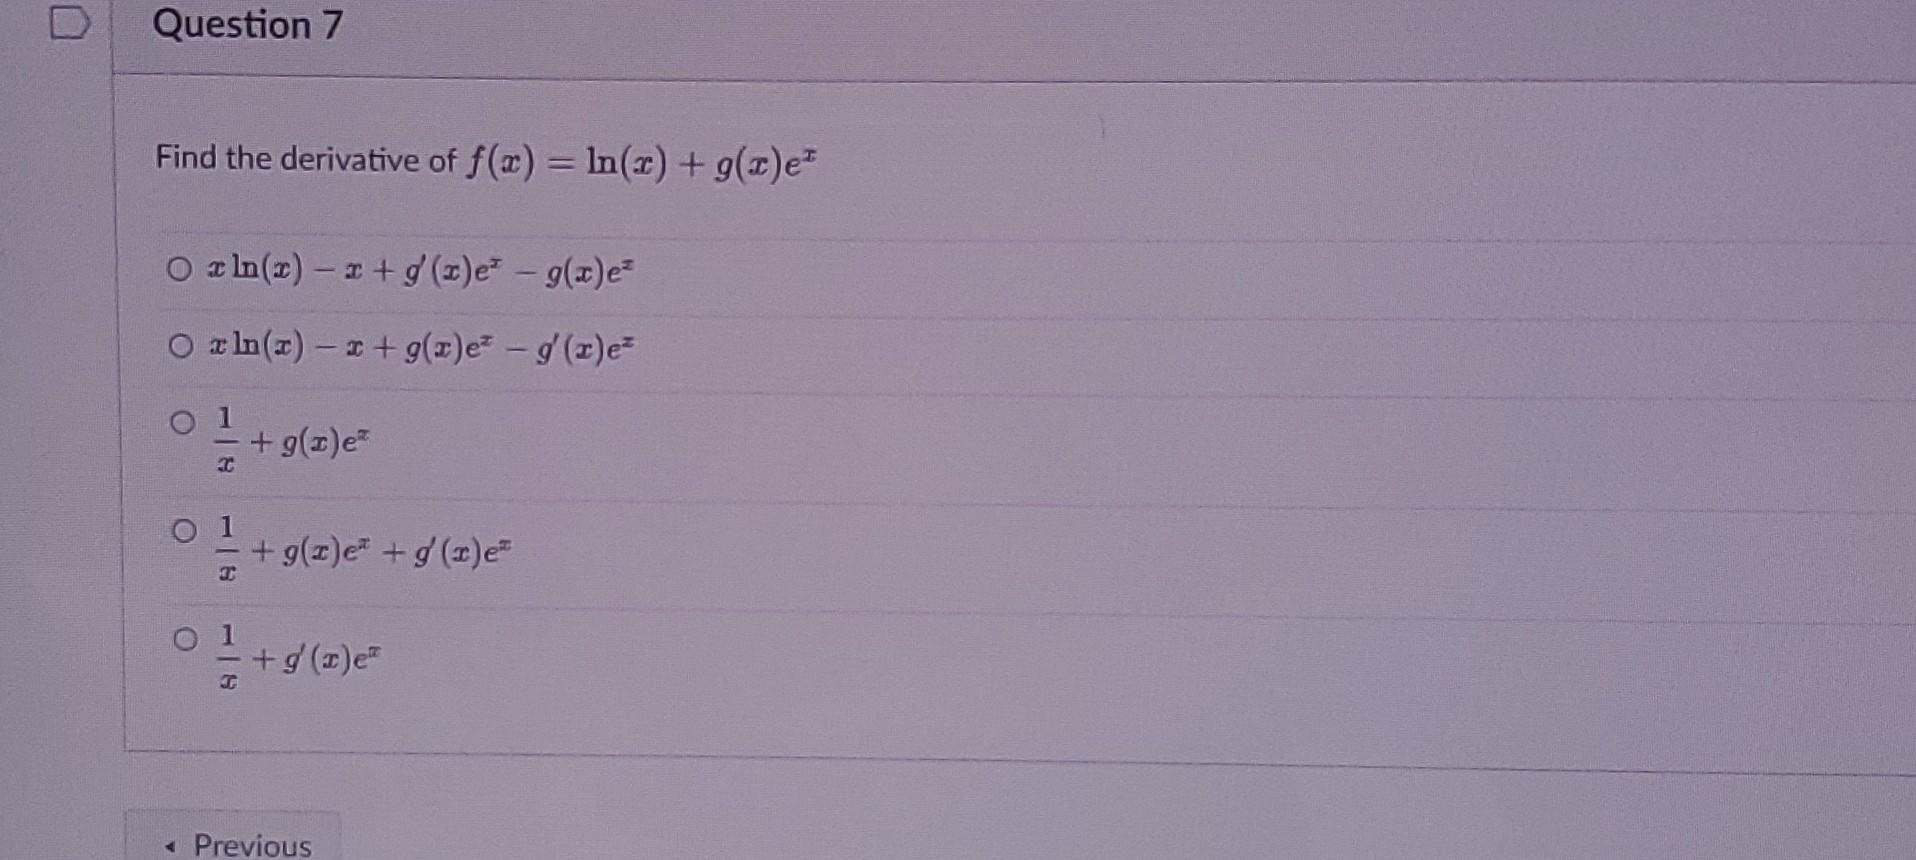 Question 7
Find the derivative of f(x) = ln(x) + g(x)eˣ
x ln(x) − x + g′(x)eˣ − g(x)eˣ
x ln(x) − x + g(x)eˣ − g′(x)eˣ
1/x + g(x)eˣ
1/x + g(x)eˣ + g′(x)eˣ
1/x + g′(x)eˣ
◂ Previous